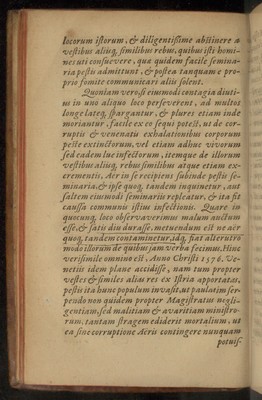 locorum istorum, & diligentissime abstinere a
vestibus aliisq́, similibus rebus, quibus isti homi-
nes uti consuevere, qua quidem facile semina-
ria pestis admittunt, & postea tanquam e pro-
prio fomite communicare aliis solent.
Quoniam vero, si eiusmodi contagia diuti-
us in uno aliquo loco perseverent, ad multos
longe lateq́, sparguntur, & plures etiam inde
moriuntur, facile ex eo sequi potest, ut de cor-
ruptis & venenatis exhalationibus corporum
peste extinctorum, vel etiam adhuc vivorum
sed eadem lue infectorum, itemque de illorum
vestibus aliisq́, rebus similibus atque etiam ex-
crementis, Aer in se recipiens subinde pestis se-
minaria, & ipse quoq́, tandem inquinetur, aut
saltem eiusmodi seminariis repleatur, & ita fit
caussa communis istius infectionis. Quare in
quocunq́, loco observaverimus malum auctum
esse, & satis diu durasse, metuendum est ne aer
quoq́, tandem contaminetur, idq́, fiat alterutro
modo illorum de quibus jam verba fecimus. Hinc
verisimile omnino est, Anno Christi 1576. Ve-
netiis idem plane accidisse, nam tum propter
vestes & similes alias res ex Istria apportatas,
pestis ita hunc populum invasit, ut paulatim ser-
pendo non quidem propter Magistratus negli-
gentiam, sed malitiam & avaritiam ministro-
rum, tantam stragem ediderit mortalium, ut
ea sine corruptione Aëris contingere nunquam
potuis-